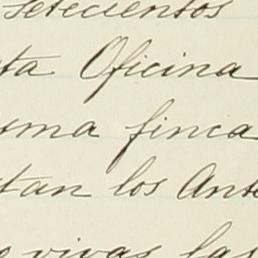 setecientos
ta Oficina
sma finca
tan los Ante
vivas las